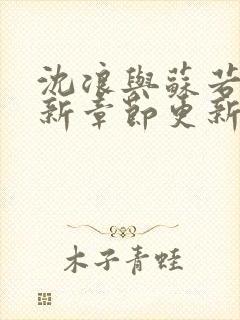 沈浪與蘇若
新章節更新
木子青蛙